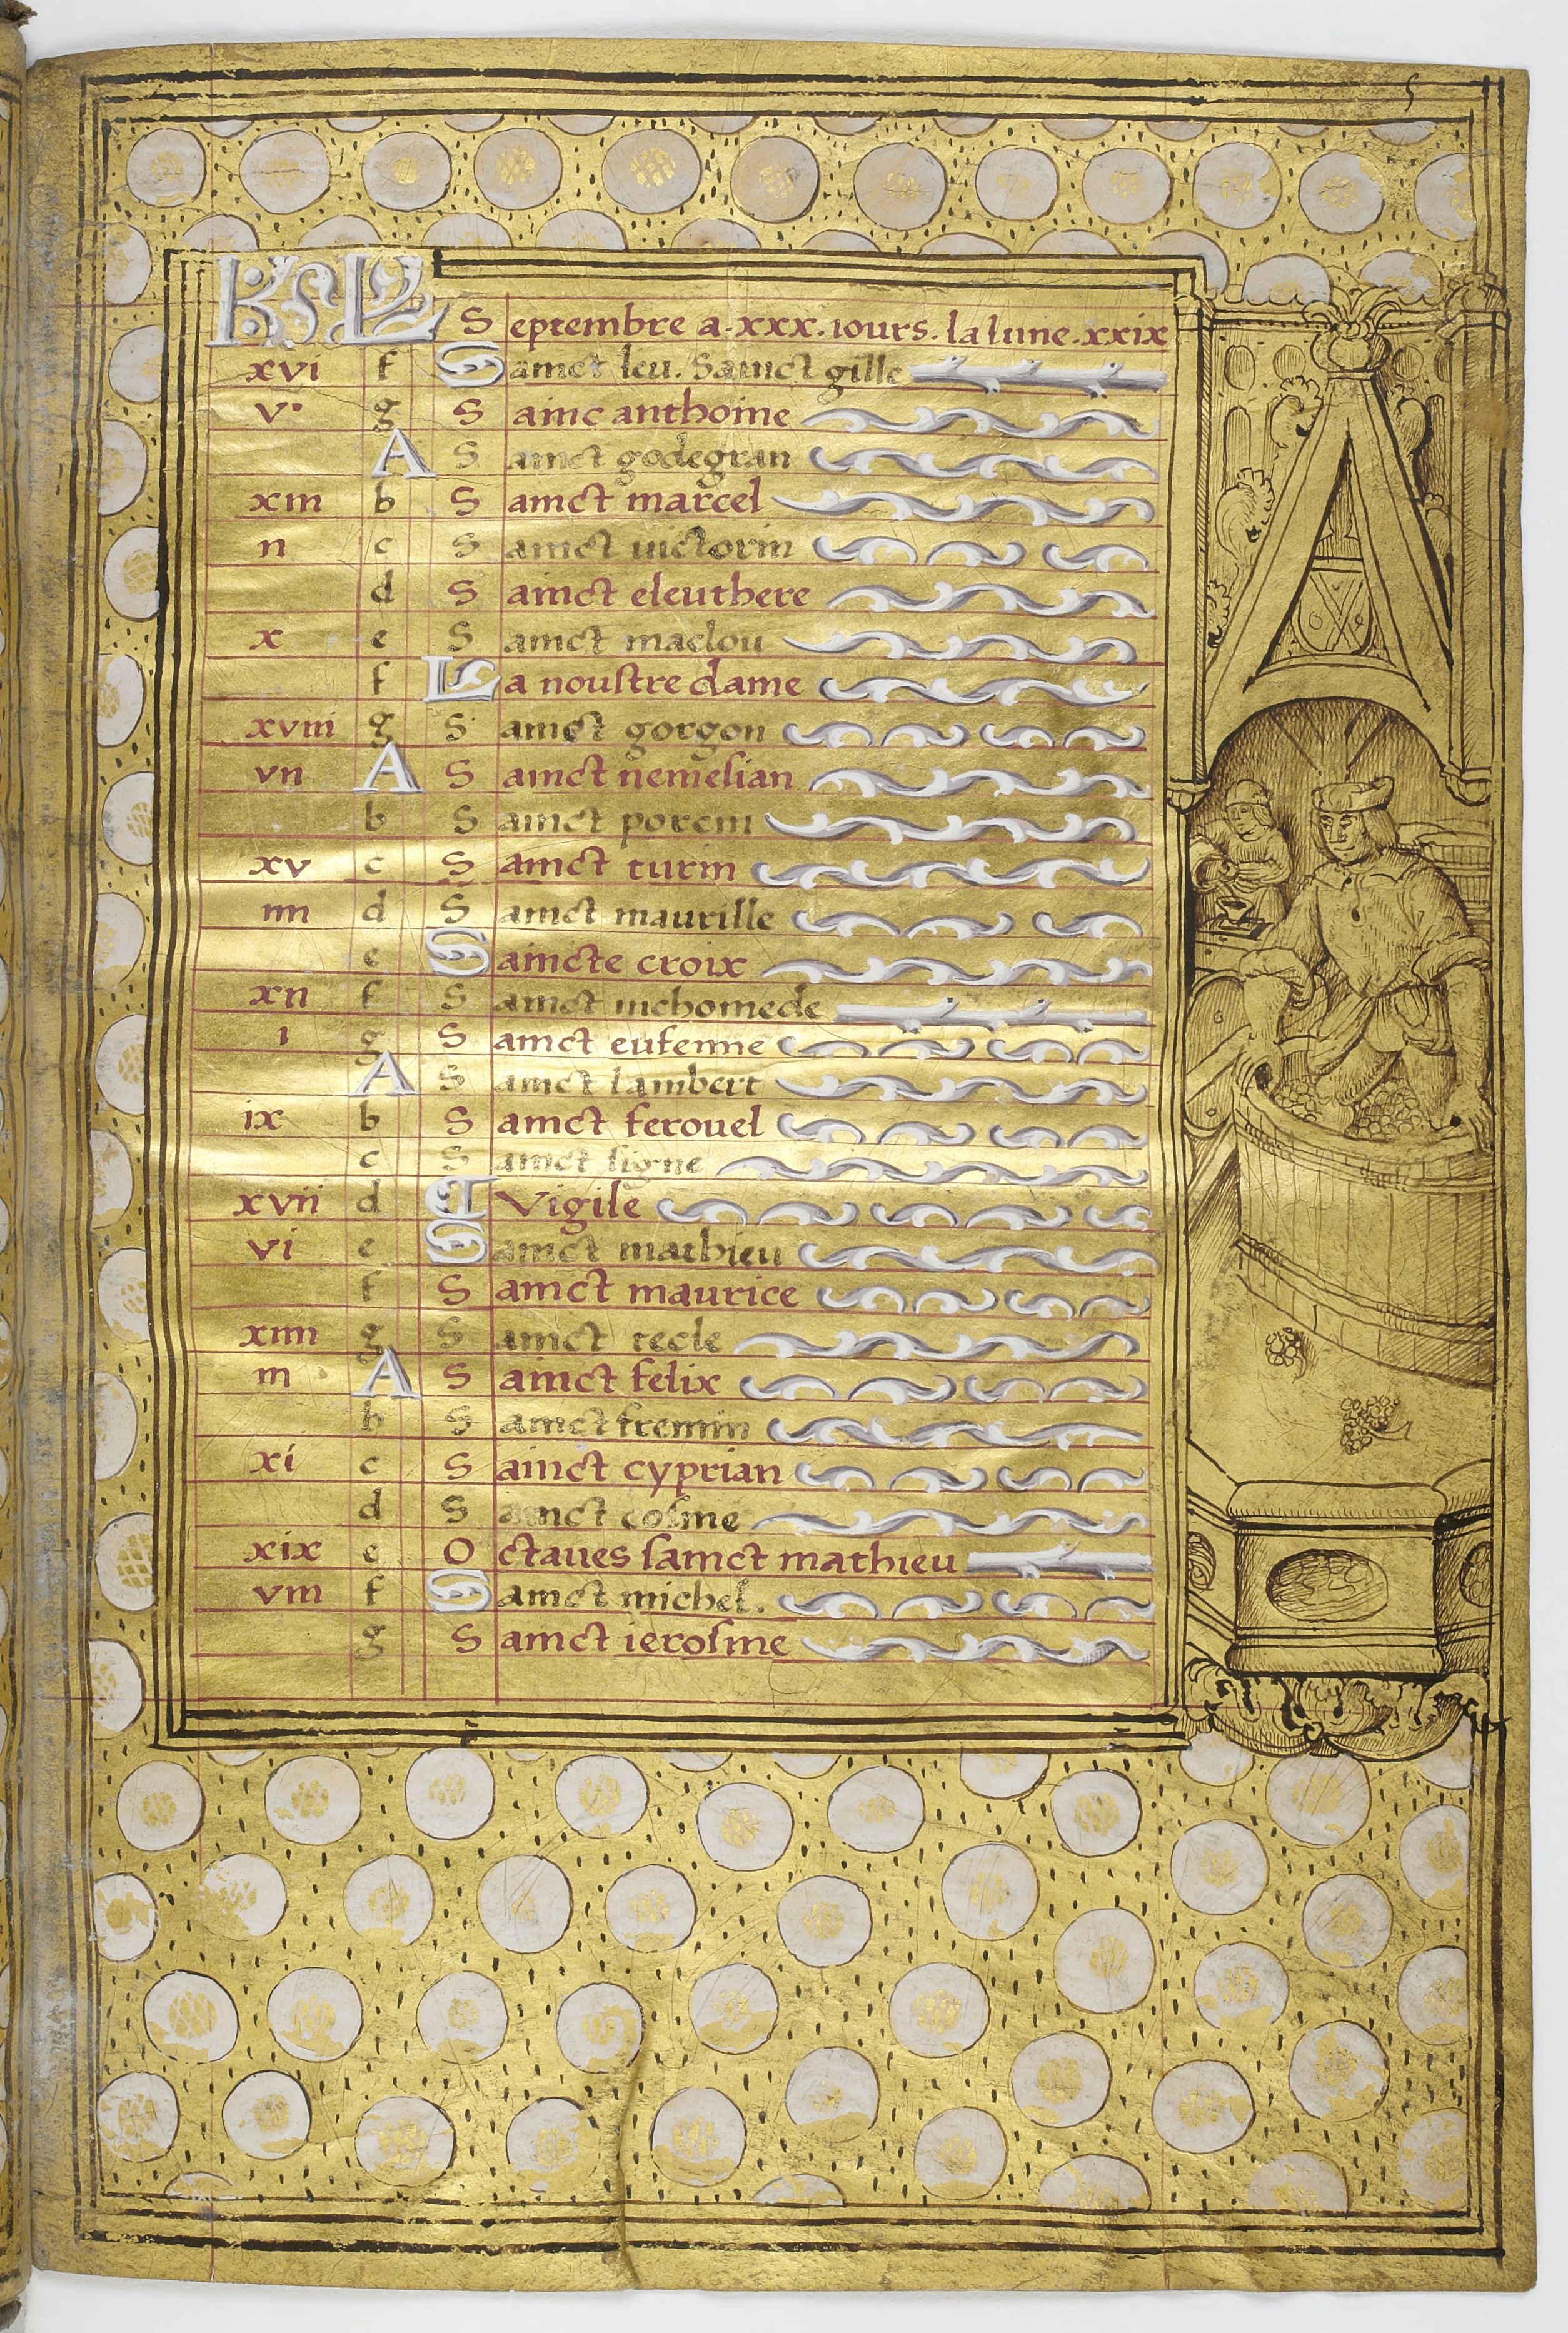 5
KL Septembre a.xxx.iours.la lune.xxix
xvi f Sainct leu. Sainct gille
v. g Sainc anthoine
A Sainct godegran
xiii b Sainct marcel
ii c Sainct victorin
d Sainct eleuthere
x e Sainct maclou
f La noustre dame
xviii g Sainct gorgon
vii A Sainct nemesian
b Sainct porcin
xv c Sainct turin
iiii d Sainct maurille
e Saincte croix
xii f Sainct nichomede
i g Sainct eufenne
A Sainct lambert
ix b Sainct ferouel
c Sainct signe
xvii d Vigile
vi e Sainct mathieu
f Sainct maurice
xiiii g Sainct tecle
iii A Sainct felix
b Sainct fremin
xi c Sainct cyprian
d Sainct cosme
xix e Octaues sainct mathieu
viii f Sainct michel.
g Sainct ierosme